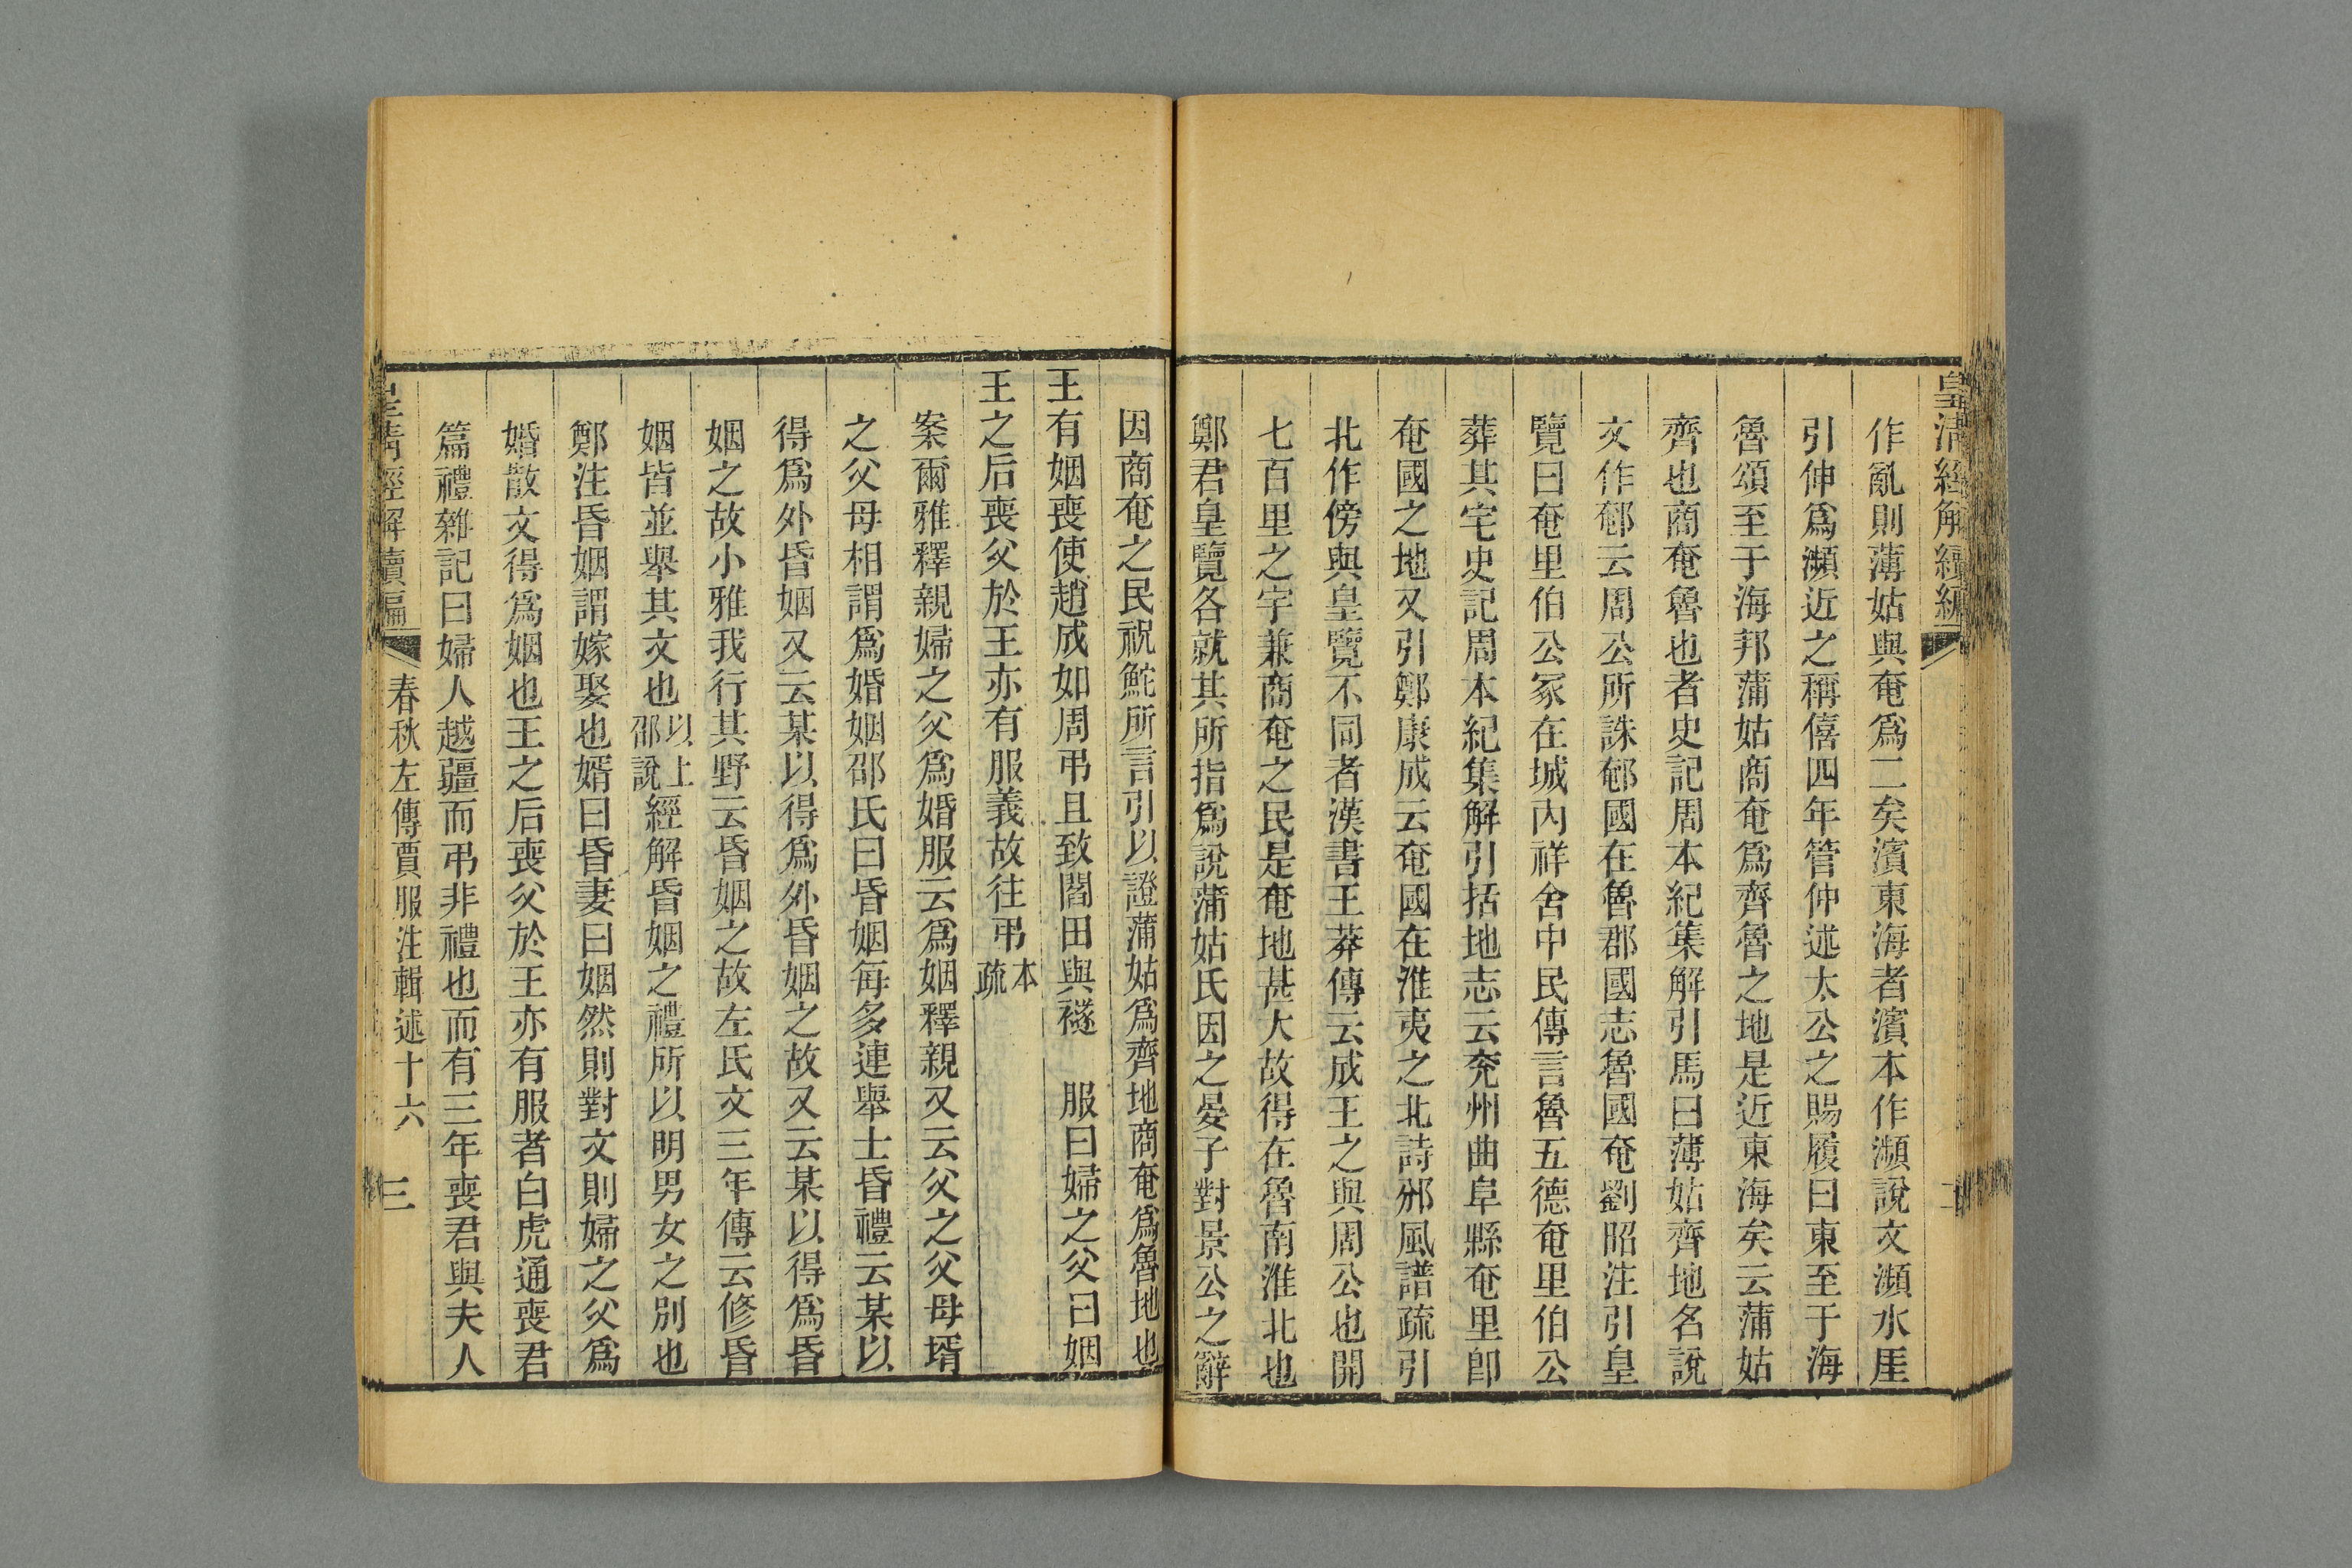 皇清經解續編
作亂則薄姑與奄爲二矣濱東海者濱本作瀕說文瀕水厓
引伸爲瀕近之稱僖四年管仲述太公之賜履曰東至于海
魯頌至于海邦蒲姑商奄爲齊魯之地是近東海矣云蒲姑
齊也商奄魯也者史記周本紀集解引馬曰薄姑齊地名說
文作䣍云周公所誅䣍國在魯郡國志魯國奄劉昭注引皇
覽曰奄里伯公冢在城內祥舍中民傳言魯五德奄里伯公
葬其宅史記周本紀集解引括地志云兖州曲阜縣奄里卽
奄國之地又引鄭康成云奄國在淮夷之北詩邠風譜疏引
北作傍與皇覽不同者漢書王莽傳云成王之與周公也開
七百里之宇兼商奄之民是奄地甚大故得在魯南淮北也
鄭君皇覽各就其所指爲說蒲姑氏因之晏子對景公之辭
因商奄之民祝鮀所言引以證蒲姑爲齊地商奄爲魯地也
王有姻喪使趙成如周弔且致閻田與襚　服曰婦之父曰姻
王之后喪父於王亦有服義故往弔本疏
案爾雅釋親婦之父爲婚服云爲姻釋親又云父之父母壻
之父母相謂爲婚姻邵氏曰昏姻每多連舉士昏禮云某以
得爲外昏姻又云某以得爲外昏姻之故又云某以得爲昏
姻之故小雅我行其野云昏姻之故左氏文三年傳云修昏
姻皆並舉其文也以上邵說經解昏姻之禮所以明男女之別也
鄭注昏姻謂嫁娶也婿曰昏妻曰姻然則對文則婦之父爲
婚散文得爲姻也王之后喪父於王亦有服者白虎通喪君
篇禮雜記曰婦人越疆而弔非禮也而有三年喪君與夫人
皇清經解續編　春秋左傳賈服注輯述十六　三